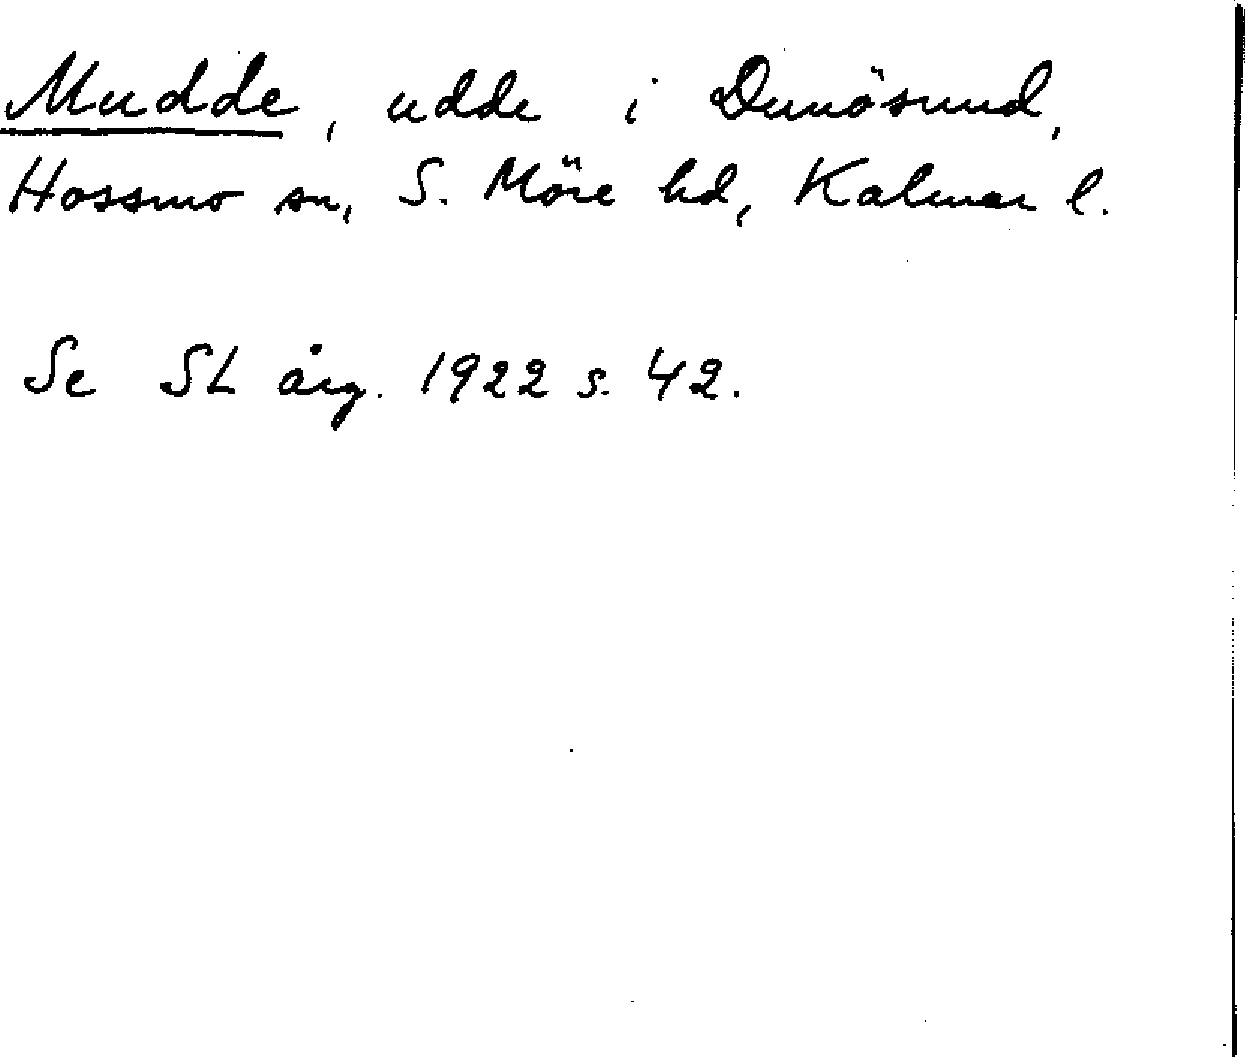 Mudde, udde i Dunösund,
Hossmo sn, S. Möre hd, Kalmar l.
Se SL årg. 1922 s. 42.